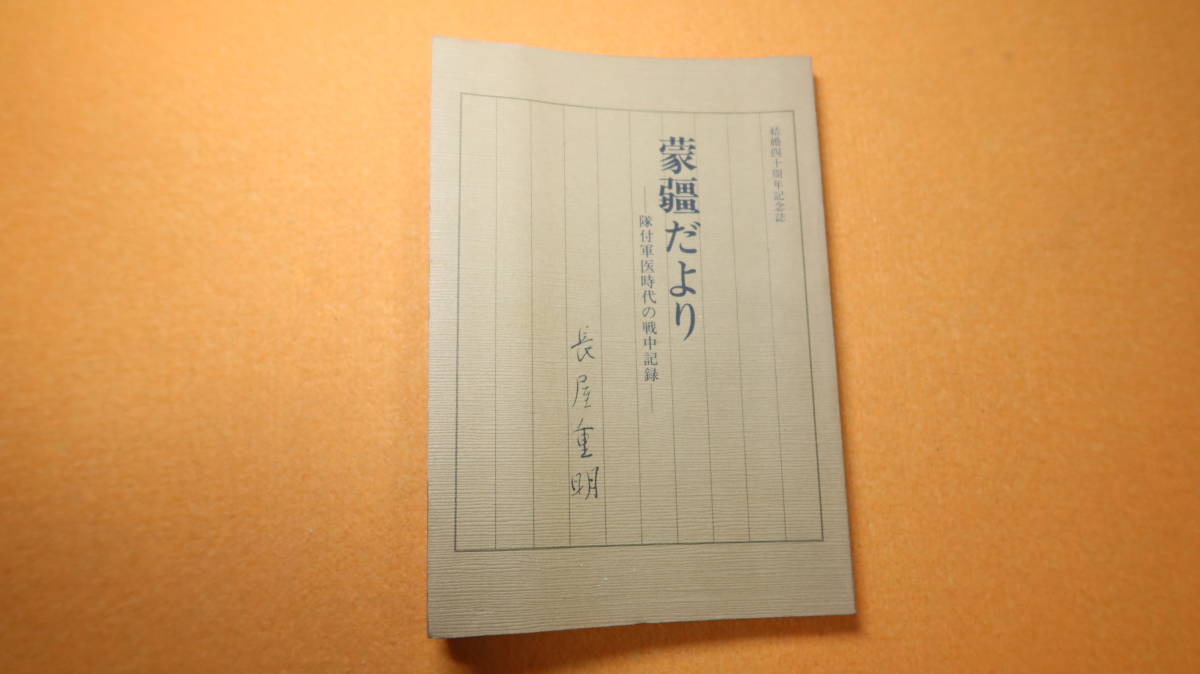 結婚四十周年記念誌
蒙疆だより
―隊付軍医時代の戦中記録―
長屋重明